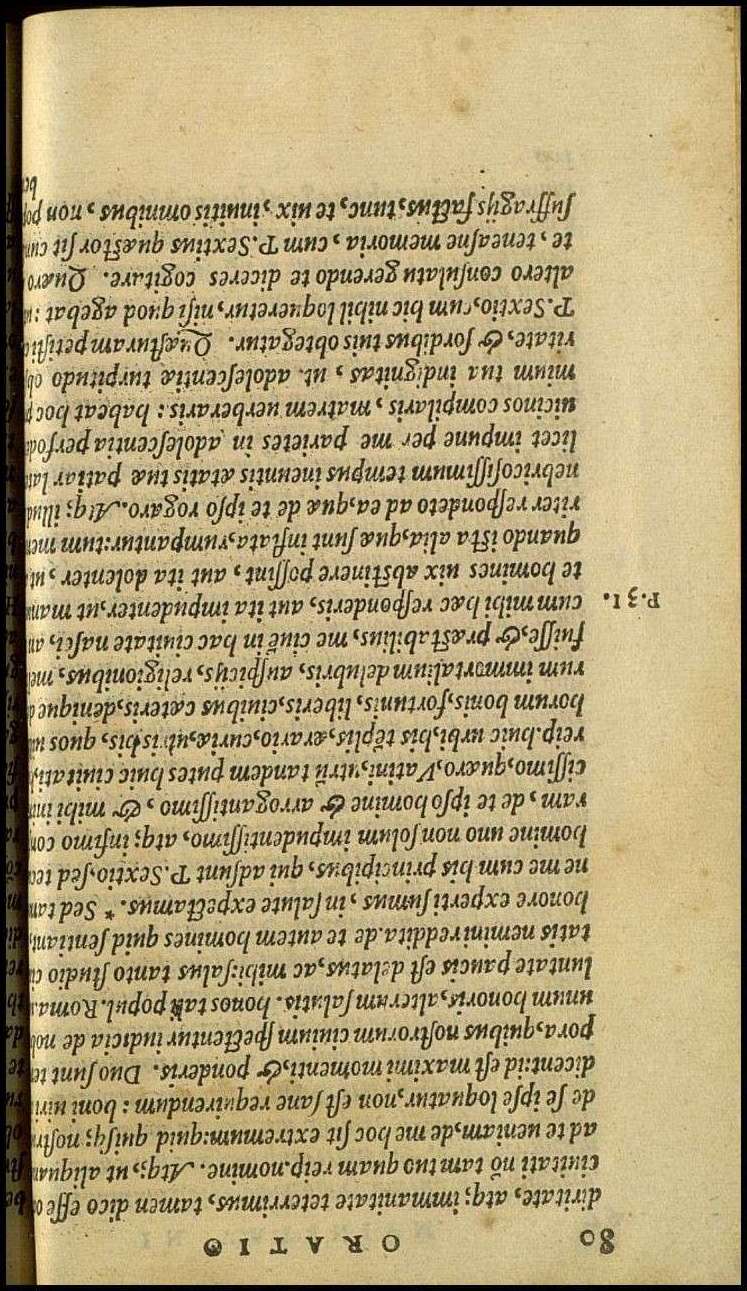 80 ORATIO
diritate, atq; immanitate teterrimus, tamen dico esse
ciuitati nõ tam tuo quam reip. nomine. Atq;, ut aliquan
ad te ueniam, de me hoc sit extremum: quid quisq; nostrũ
de se ipse loquatur, non est sane requirendum: boni uiri
dicent: id est maximi momenti, & ponderis. Duo sunt te
pora, quibus nostrorum ciuium spectentur iudicia de nob
unum honoris, alterum salutis. honos tali popul. Roma.
luntate paucis est delatus, ac mihi: salus tanto studio ci
tatis nemini reddita. de te autem homines quid sentiant,
honore experti sumus, in salute expectamus. * Sed tam
ne me cum his principibus, qui adsunt P. Sextio, sed te
homine uno non solum impudentissimo, atq; infimo con
ram, de te ipso homine & arrogantissimo, & mihi ini
cissimo, quæro, Vatini, utrũ tandem putes huic ciuitati,
reip. huic urbi, his tẽplis, ærario, curiæ, uiris his, quos
horum bonis, fortunis, liberis, ciuibus cæteris, denique
rum immortalium delubris, auspicijs, religionibus, me
fuisse, & præstabilius, me ciuẽ in hac ciuitate nasci, an
P. 31. cum mihi hac responderis, aut ita impudenter, ut manus
te homines uix abstinere possint, aut ita dolenter, ut
quando ista alia, quæ sunt inflata, rumpantur: tum mem
riter respondeto ad ea, quæ de te ipso rogaro. Atq; illud
nebricosissimum tempus ineuntis ætatis tuæ patiar
licet impune per me parietes in adolescentia perfode
uicinos compilaris, matrem uerberaris: habeat hoc
mium tua indignitas, ut adolescentiæ turpitudo
ritate, & sordibus tuis obtegatur. Quæsturam petisti
P. Sextio, cum hic nihil loqueretur, nisi quod agebat:
altero consulatu gerendo te diceres cogitare. Quæro
te, teneasne memoria, cum P. Sextius quæstor sit cun
suffragijs factus, tunc, te uix, inuitis omnibus, non
be